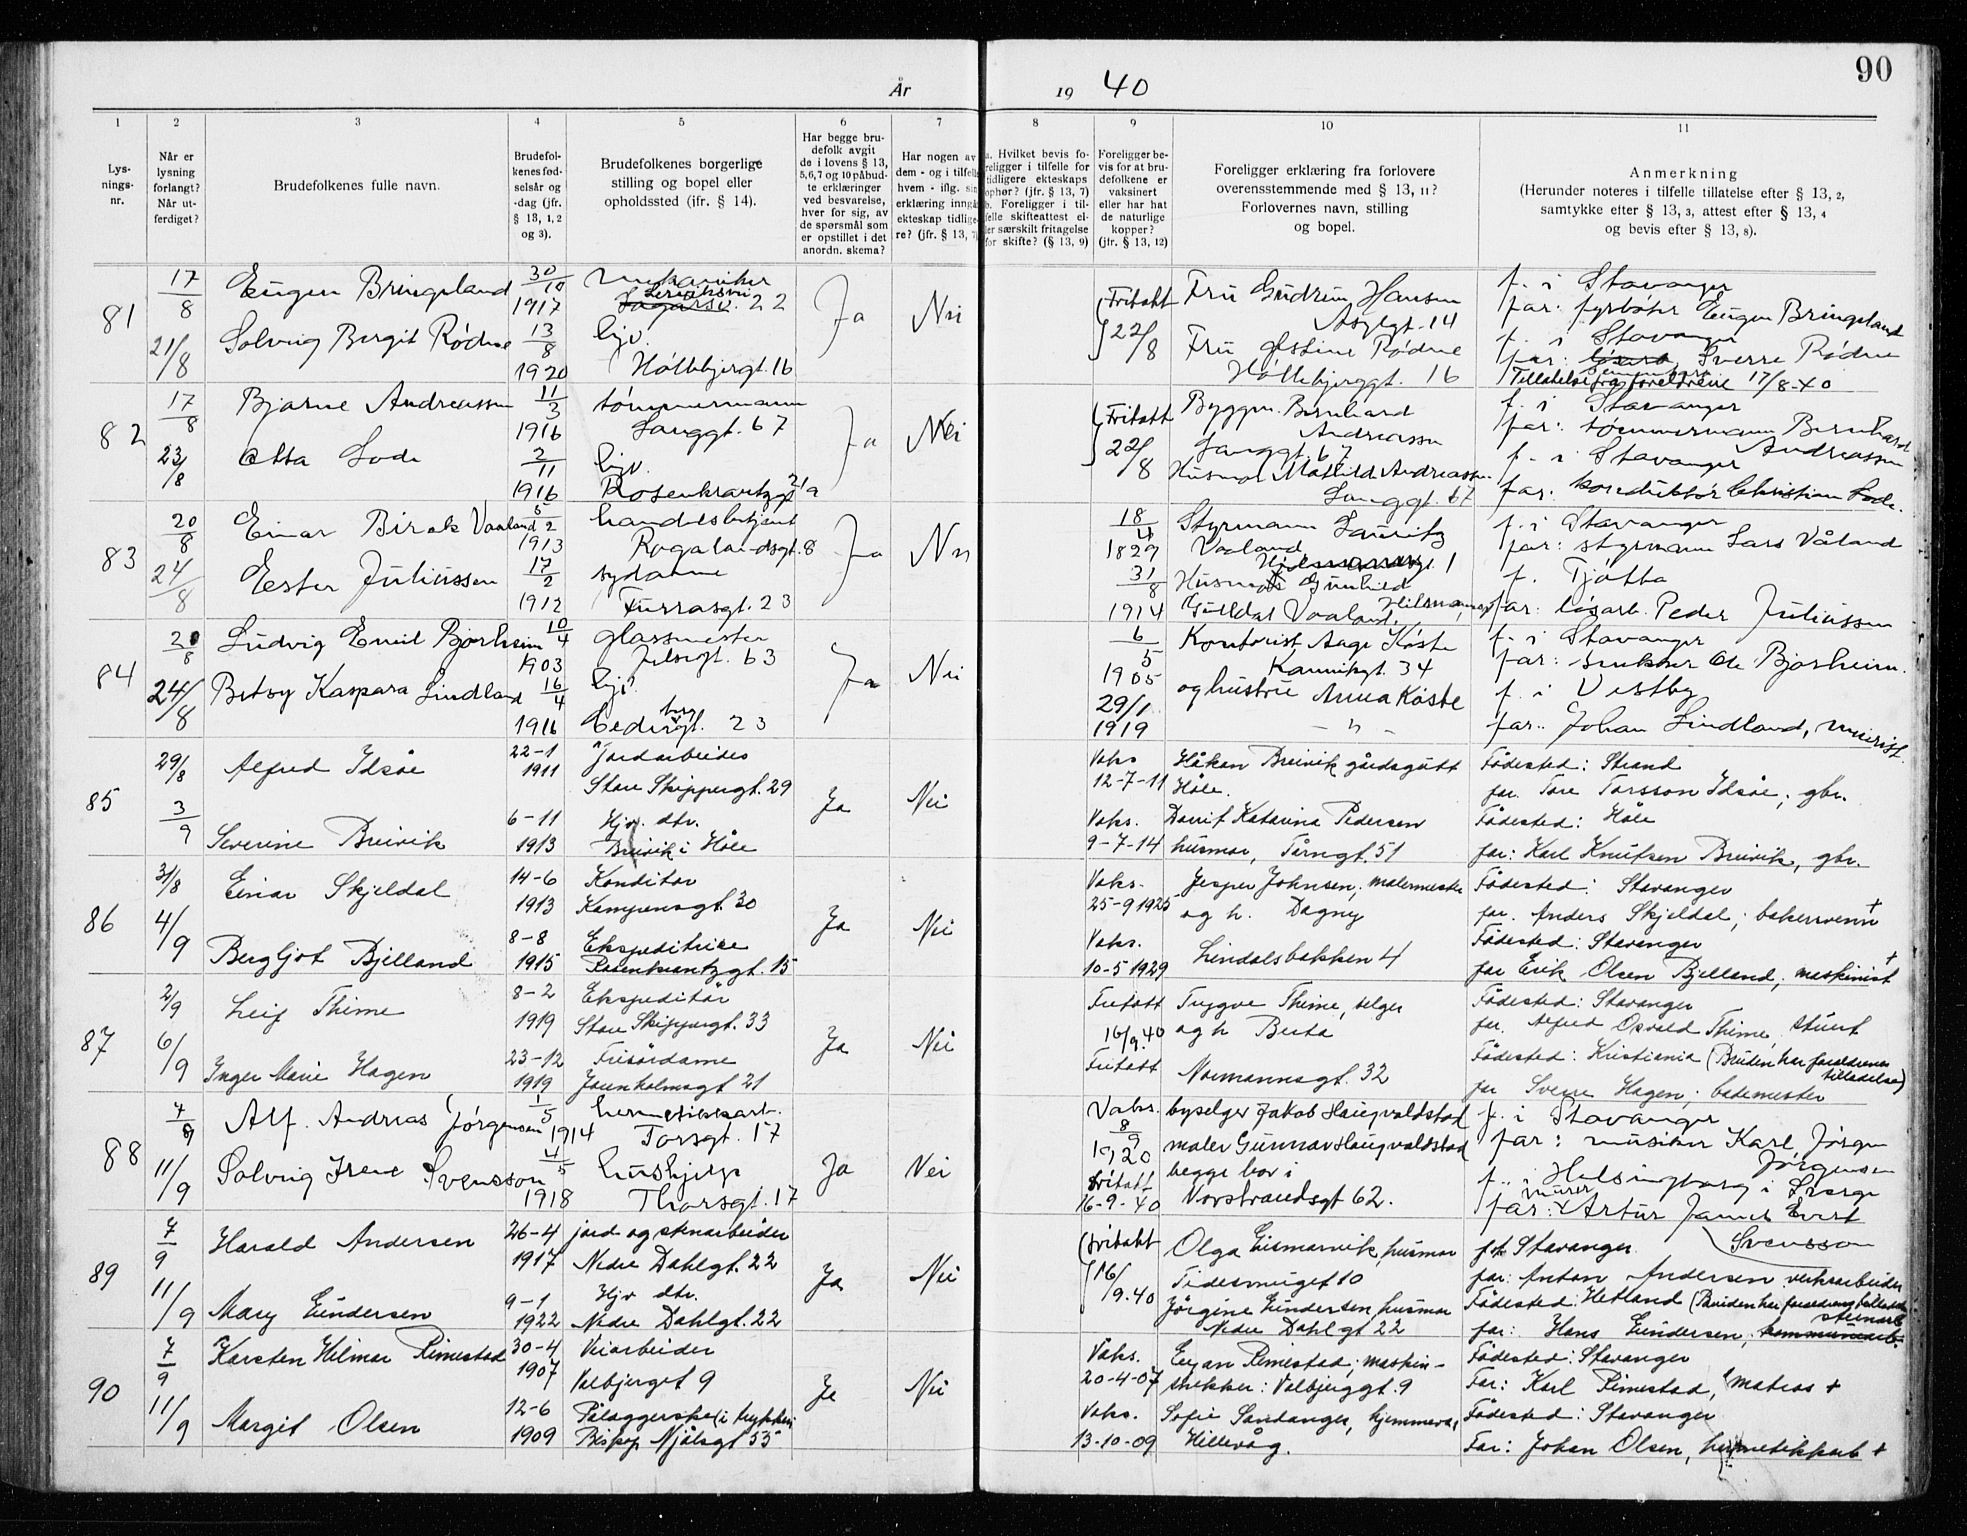 90
År 19 40
1 2 3 4 5 6 7 8 9 10 11
Lys-
nings-
nr.
Når er
lysning
forlangt?
Når ut-
ferdiget?
Brudefolkenes fulle navn.
Brudefol-
kenes fød-
selsår og
-dag (jfr.
§ 13, 1, 2
og 3).
Brudefolkenes borgerlige
stilling og bopel eller
opholdssted (ifr. § 14).
Har begge bru-
defolk avgit
de i lovens § 13,
5,6,7 og 10 påbud-
te erklæringer
ved besvarelse,
hver for sig, av
de spørsmål som
er opstillet i det
anordn. skema?
Har nogen av
dem - og i tilfelle
hvem - iflg. sin
erklæring inngå
ekteskap tidlige-
re? (jfr. § 13, 7)
a. Hvilket bevis fo-
religger i tilfelle for
tidligere ekteskaps
ophør? (jfr. § 13, 7)
b. Foreligger i til-
felle skifteattest el-
ler særskilt fritagelse
for skifte? (§ 13, 9)
Foreligger be-
vis for at bru-
defolkene er
vaksinert
eller har hat
de naturlige
kopper?
(jfr. § 13, 12)
Foreligger erklæring fra forlovere
overensstemmende med § 13, 11?
Forlovernes navn, stilling
og bopel.
Anmerkning
(Herunder noteres i tilfelle tillatelse efter § 13, 2,
samtykke efter § 13, 3, attest efter § 13, 4
og bevis efter § 13, 8).
81
17/8
21/8
Eugen Bringeland
30/10
1917
mekaniker
22
Solveig Bergit Rødne
13/8
1920
hjv.
Håttebjergt. 16
Ja
Nei
Fritatt
22/8
Fru Gudrun Hansen
Asylgt. 14
Fru Østine Rødne
Håttebjerggt. 16
f. i Stavanger
far: fyrbøter Eugen Bringeland
f. i Stavanger
far: Sverre Rødne
Tillatelse fra foreldrene 17/8-40
82
17/8
23/8
Bjarne Andreassen
11/3
1916
tømmermann
Langgt. 67
Atta Lode
2/11
1916
hjv.
Rosenkrantzgt 21a
Ja
Nei
Fritatt
22/8
Byggm. Bernhard
Andreassen
Langgt. 67
Husmor Mathild Andreassen
Langgt. 67
f. i Stavanger
far: tømmermann Bernhard
Andreassen
f. i Stavanger
far: konduktør Christian Lode.
83
20/8
24/8
Einar Birak Vaaland
5/2
1913
handelsbetjent
Rogalandsgt. 8
Ester Juliussen
17/2
1912
sydame
Furrasgt. 23
Ja
Nei
18/4
1829
31/8
1914
Styrmann Lauritz
Vaaland
1
Husmor Gunhild
Gulldal Vaaland,
f. i Stavanger
far: styrmann Lars Våland
f. Tjøtta
far: løsarb. Peder Juliussen
84
20/8
24/8
Ludvig Emil Bjorheim
10/4
1903
glassmester
Jelsagt. 63
Betsy Kaspara Lindland
16/4
1916
hjv.
Cederbergt. 23
Ja
Nei
6/5
1905
29/1
1919
Kontorist Aage Køste
Kannikgt. 34
og hustru Anna Køste
- " -
f. i Stavanger
far: snekker Ole Bjorheim.
f. i Vestby
far: Johan Lindland,
85
29/8
3/9
Alfred Idsøe
22-1
1911
Jordarbeider
Store Skippergt. 29
Severine Breivik
6-11
1913
Hjv. dtr.
Breivik i Høle
Ja
Nei
Vaks
12-7-11
Vaks.
9-7-14
Håkon Breivik gårdsgutt
Høle.
Dorrit Katarina Pedersen
husmor, Tårngt. 51
Fødested: Strand
far. Tore Torsson Idsøe, gbr.
Fødested: Høle
far: Karl Knutsen Breivik, gbr.
86
31/8
4/9
Einar Skjeldal
14-6
1913
Konditor
Kampensgt. 30
Bergljot Bjelland
8-8
1915
Ekspeditrice
Rosenkrantzgt. 15
Ja
Nei
Vaks.
25-9 1925
Vaks.
10-5 1929
Jesper Johnsen, malermester
og h. Dagny
Lindalsbakken 4
Fødested: Stavanger
far. Anders Skjeldal; bakersvenn +
Fødested: Stavanger
far Erik Olsen Bjelland; maskinist +
87
2/9
6/9
Leif Thime
8-2
1919
Ekspeditør
Store Skippergt. 33
Inger Marie Hagen
23-12
1919
Frisørdame
Jorenholmsgt 21
Ja
Nei
Fritatt
16/9.40
Fritatt
Tryggve Thime, selger
og h Berta
Normannsgt. 32
Fødested: Stavanger
far. Alfred Osvald Thime, stuert
Fødested: Kristiania (Bruden har foreldrenes
tilladelse)
far Sverre Hagen; bademester
88
7/9
11/9
Alf. Andreas Jørgensen
1/5
1914
hermetikkarb.
Torsgt. 17
Solveig Irene Svensson
4/5
1918
hushjelp
Thorsgt. 17
Ja
Nei
Vaks.
8/9
1920
Fritatt
16-9-40
byselger Jakob Haugvaldstad
maler Gunnar Haugvaldstad
begge bor i
Vorstrandsgt 62.
f. i Stavanger
far: musiker Karl Jørgen
Jørgensen
f. i Helsingborg i Sverge
far: murer Artur James Evert
Svensson
89
7/9
11/9
Harald Andersen
26-4
1917
jord og stenarbeider
Nedre Dahlgt. 22
Mary Gundersen
9-1
1922
Hjv dtr.
Nedre Dahlgt. 22
Ja
Nei
Fritatt
16/9.40
Olga Eismarvik, husmor
Tidesmuget 10
Jørgine Gundersen, husmor
Nedre Dahlgt 22
Stavanger
far: Anton Andersen verksarbeider
Fødested: Hetland (Bruden har foreldrenes
stenarb
far: Hans Gundersen, kommunearb.
90
7/9
11/9
Karsten Hilmar Rimestad
30-4
1907
Veiarbeider
Valbjerget 9
Margit Olsen
12-6
1909
Påleggerske (i trykkeri
Biskop Njålsgt 55
Ja
Nei
Vaks.
20-4-07
Vaks.
13-10-09
Enjan Rimestad, maskin-
trekker: Valbjerggt. 9
Sofie Sandanger, hjemmevær
Hillevåg.
Fødested: Stavanger
Far: Karl Rimestad, matros +
Fødested: Stavanger
Far: Johan Olsen, hermetikkarb +